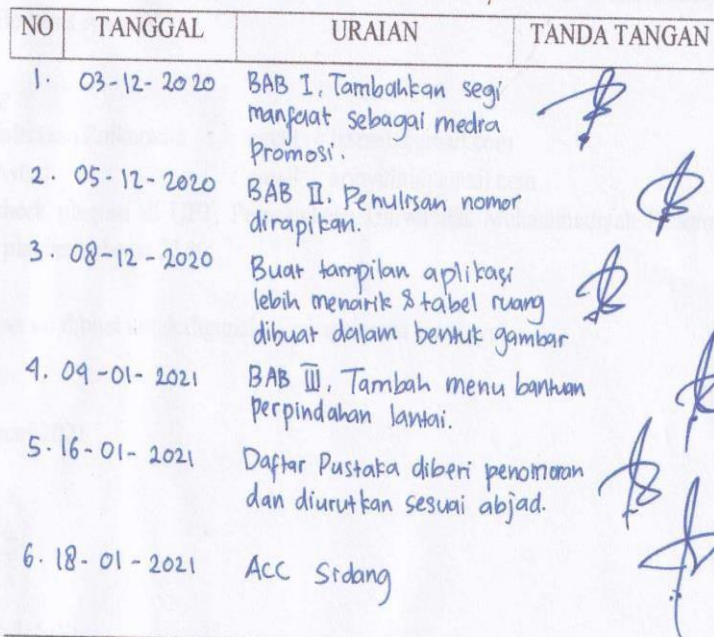 NO TANGGAL URAIAN TANDA TANGAN
1. 03-12-2020 BAB I. Tambahkan segi
manfaat sebagai media
promosi.
2. 05-12-2020 BAB II. Penulisan nomor
dirapikan.
3. 08-12-2020 Buat tampilan aplikasi
lebih menarik & tabel ruang
dibuat dalam bentuk gambar
4. 09-01-2021 BAB III. Tambah menu bantuan
perpindahan lantai.
5. 16-01-2021 Daftar Pustaka diberi penomoran
dan diurutkan sesuai abjad.
6. 18-01-2021 ACC Sidang